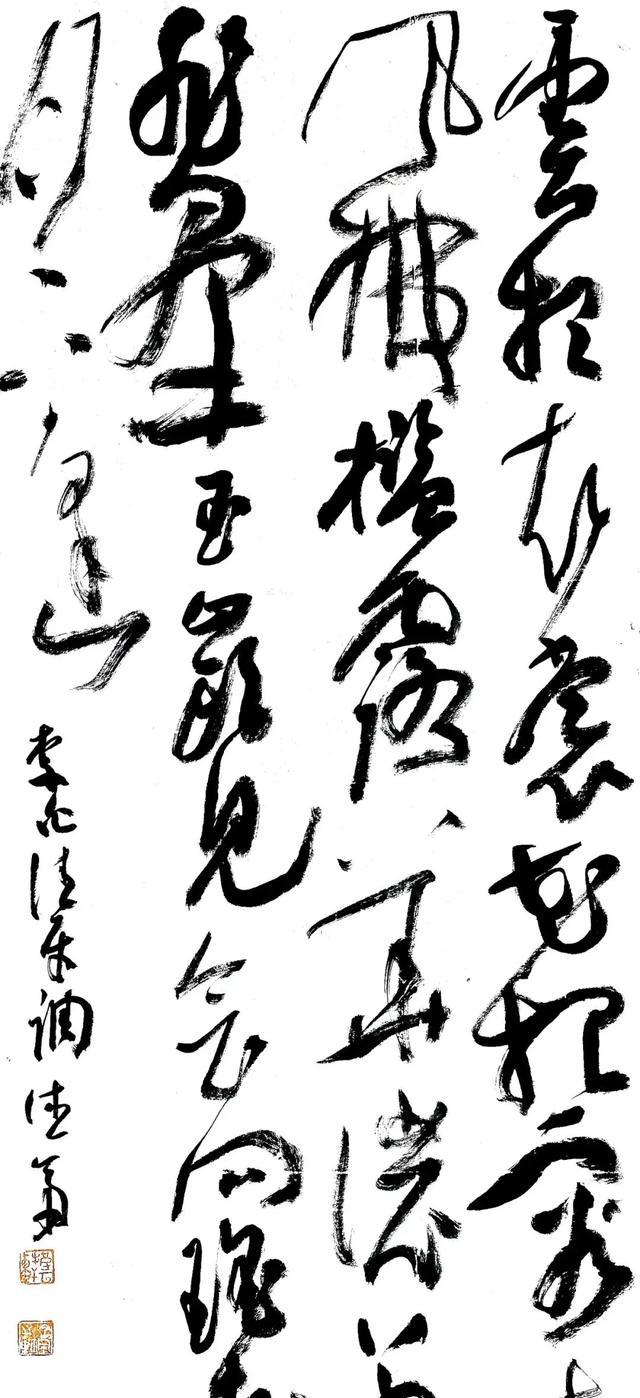 雲想衣裳花想容
風拂檻露華濃
非羣玉山頭見會向瑤
月下逢
李白清平調